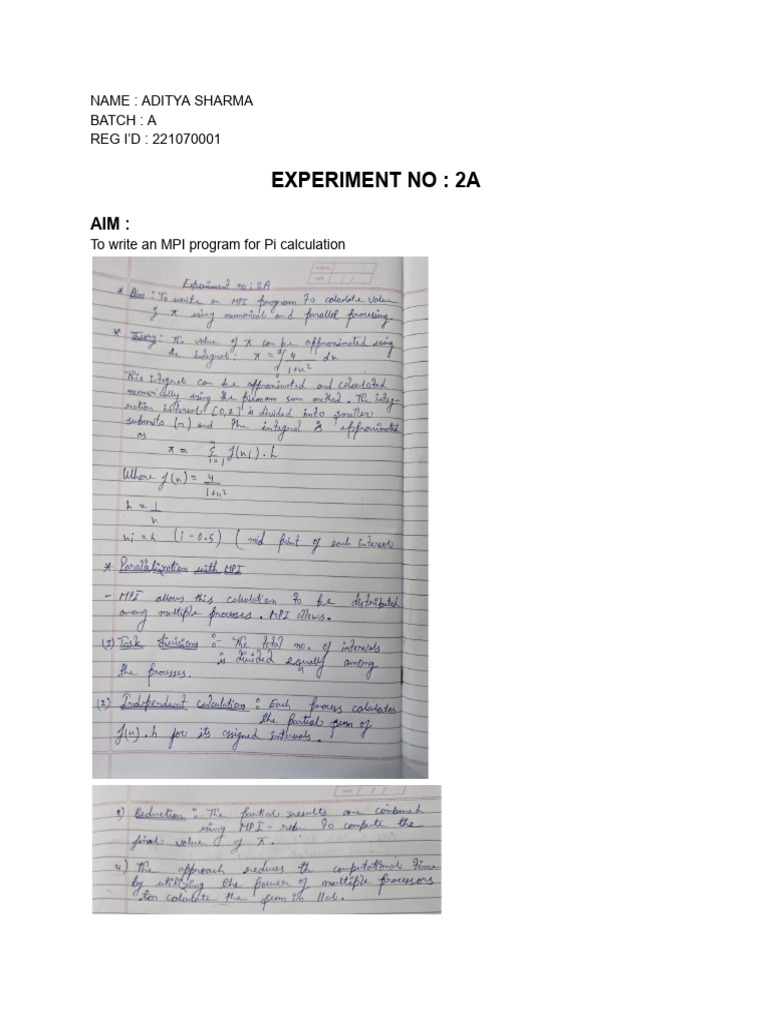 NAME : ADITYA SHARMA
BATCH : A
REG I'D : 221070001
EXPERIMENT NO : 2A
AIM :
To write an MPI program for Pi calculation
Experiment no: 2A
* Aim : To write an MPI program to calculate value
of π using numerical and parallel processing
* Theory: The value of π can be approximated using
the integral: π = ∫ 4/(1+x²) dx
This integral can be approximated and calculated
numerically using the sum method. The integ-
ration interval [0,1] is divided into smaller
subunits (n) and the integral is approximated
as
π = Σ i=1 n f(xi) . h
Where f(x) = 4/(1+x²)
h = 1/n
xi = h (i - 0.5) ( mid point of each interval
* Parallelization with MPI
- MPI allows this calculation to be distributed
among multiple processes. MPI allows.
(1) Task division :- The total no. of intervals
is divided equally among
the processes.
(2) Independent calculation : Each process calculates
the partial sum of
f(x) . h for its assigned intervals.
3) Reduction : The partial results are combined
using MPI - to compute the
final value of π.
4) The approach reduces th computational time
by utilizing the power of multiple processors
to calculate the sum in ||el.